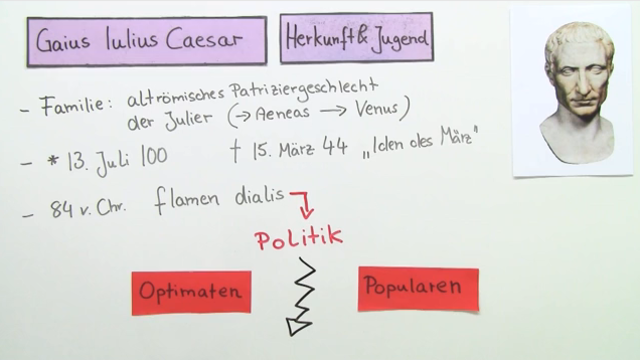 Gaius Iulius Caesar
Herkunft & Jugend
- Familie: altrömisches Patriziergeschlecht
der Julier (→ Aeneas → Venus)
- * 13. Juli 100 † 15. März 44 „Iden des März"
- 84 v. Chr. flamen dialis
Politik
Optimaten
Popularen